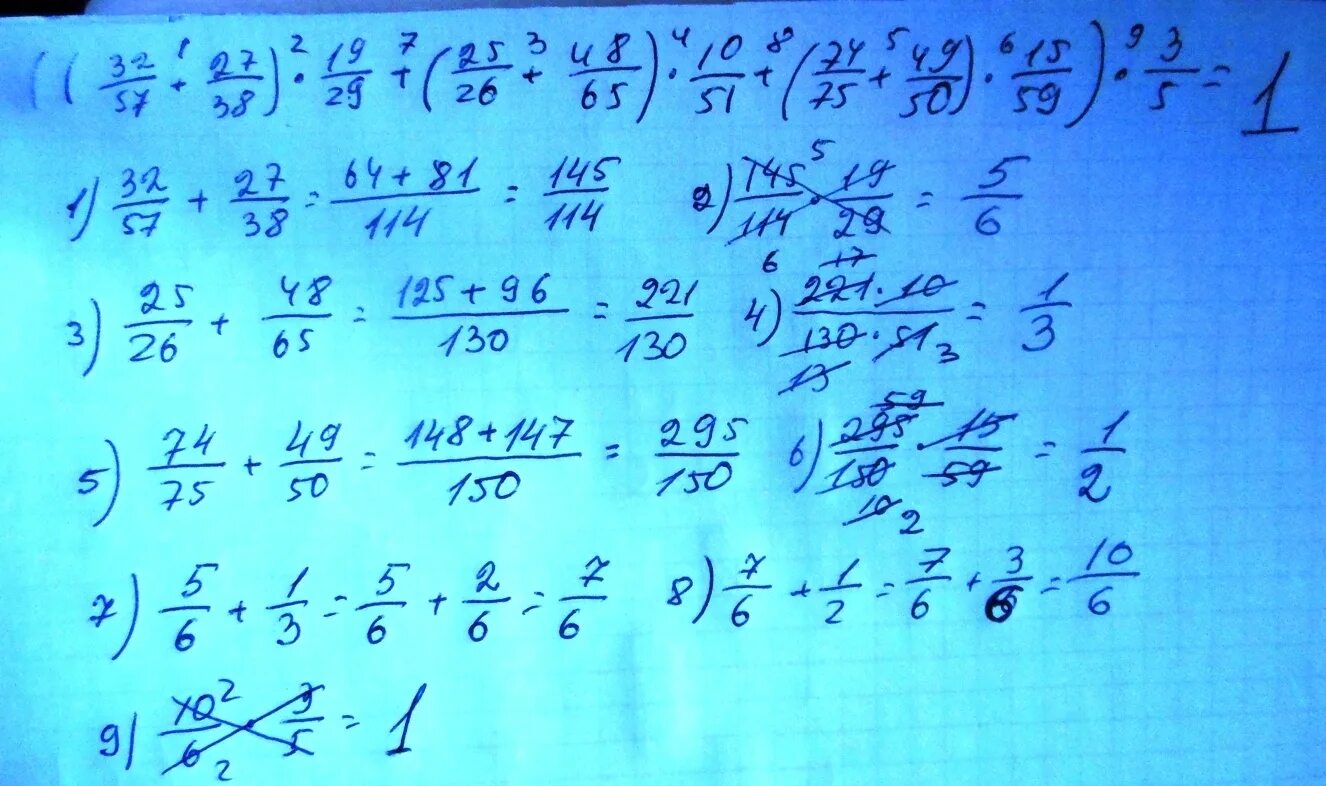 ((32/57 + 27/38) · 19/29 + (25/26 + 48/65) · 10/51 + (74/75 + 49/50) · 15/59) · 3/5 = 1
1) 32/57 + 27/38 = (64 + 81)/114 = 145/114 2) 145/114 · 19/29 = 5/6
3) 25/26 + 48/65 = (125 + 96)/130 = 221/130 4) (221 · 10)/(130 · 51) = 1/3
5) 74/75 + 49/50 = (148 + 147)/150 = 295/150 6) 295/150 · 15/59 = 1/2
7) 5/6 + 1/3 = 5/6 + 2/6 = 7/6 8) 7/6 + 1/2 = 7/6 + 3/6 = 10/6
9) 10/6 · 3/5 = 1